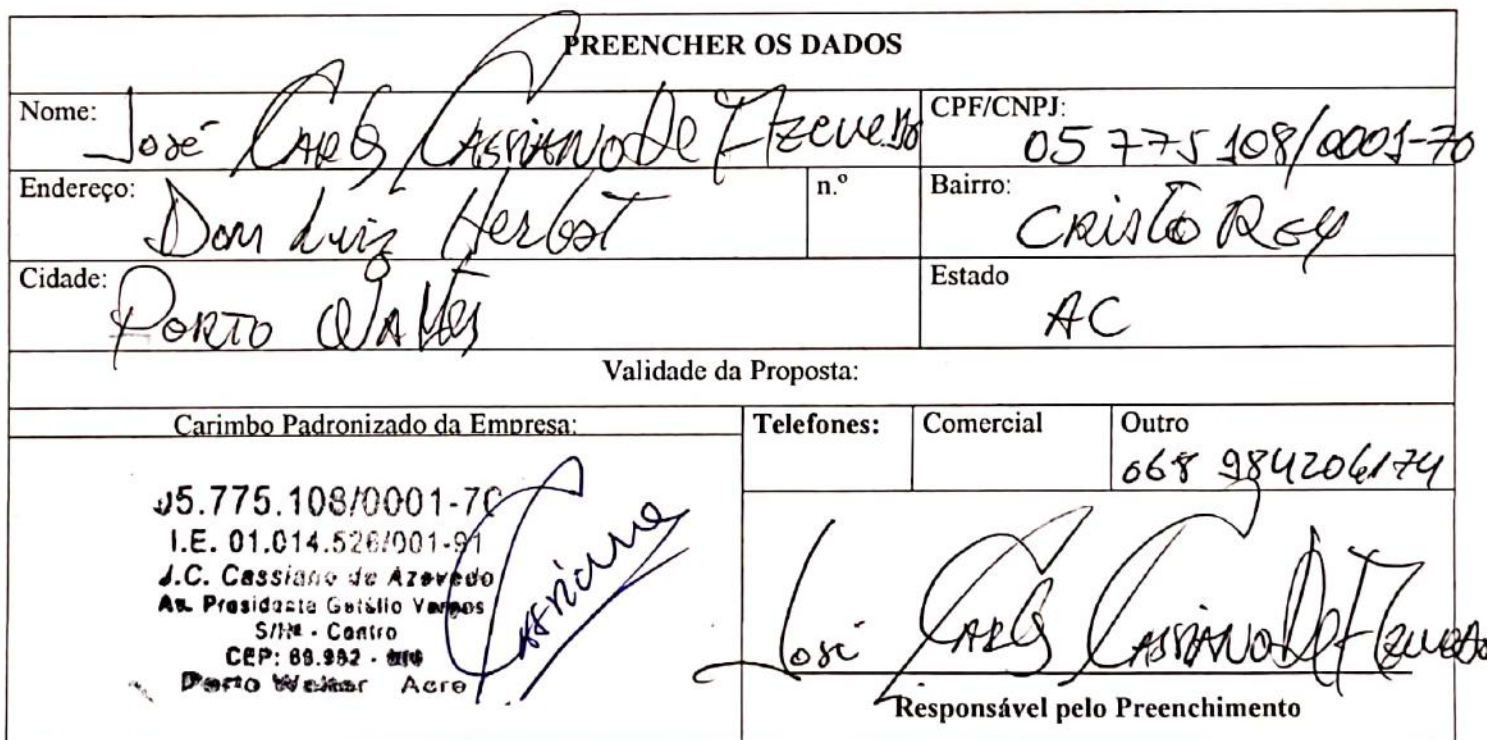 PREENCHER OS DADOS
Nome: José Carlos Cassiano De Azevedo CPF/CNPJ: 05 775 108/0001-70
Endereço: Dom Luiz Herbst n.º Bairro: Cristo Rey
Cidade: Porto Walter Estado AC
Validade da Proposta:
Carimbo Padronizado da Empresa: Telefones: Comercial Outro
068 984206174
05.775.108/0001-70
I.E. 01.014.526/001-91
J.C. Cassiano de Azevedo
Av. Presidente Getúlio Vargas
S/Nº - Centro
CEP: 69.982 -
Porto Walter Acre
Cassiano
José Carlos Cassiano De Azevedo
Responsável pelo Preenchimento